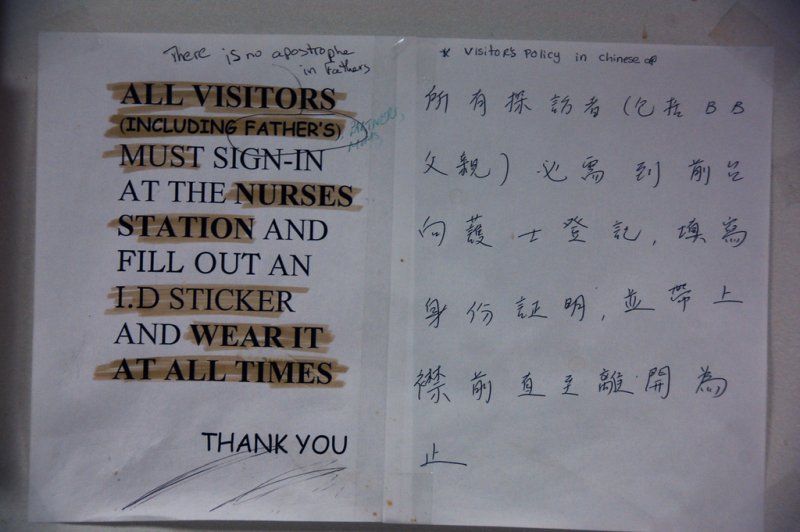 There is no apostrophe
in Fathers
ALL VISITORS
(INCLUDING FATHER'S)
PARTNERS,
MUST SIGN-IN
AT THE NURSES
STATION AND
FILL OUT AN
I.D STICKER
AND WEAR IT
AT ALL TIMES
THANK YOU
* Visitor's Policy in Chinese
所有探訪者(包括BB
父親)必需到前台
向護士登記,填寫
身份証明,並帶上
襟前直至離開為
止